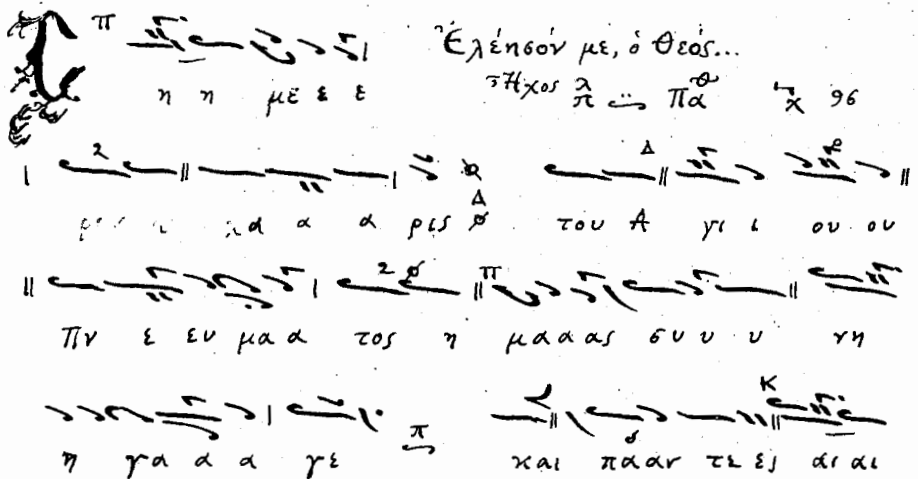 Ἐλέησόν με, ὁ Θεός...
Σ η η με ε ε Ἦχος λ π Πα χ 96
ρις η χα α α ρις του Α γι ι ου ου
Πν ε ευ μα α τος η μα α ας συ υ υ νη
η γα α α γε και πα αν τε ες αι αι